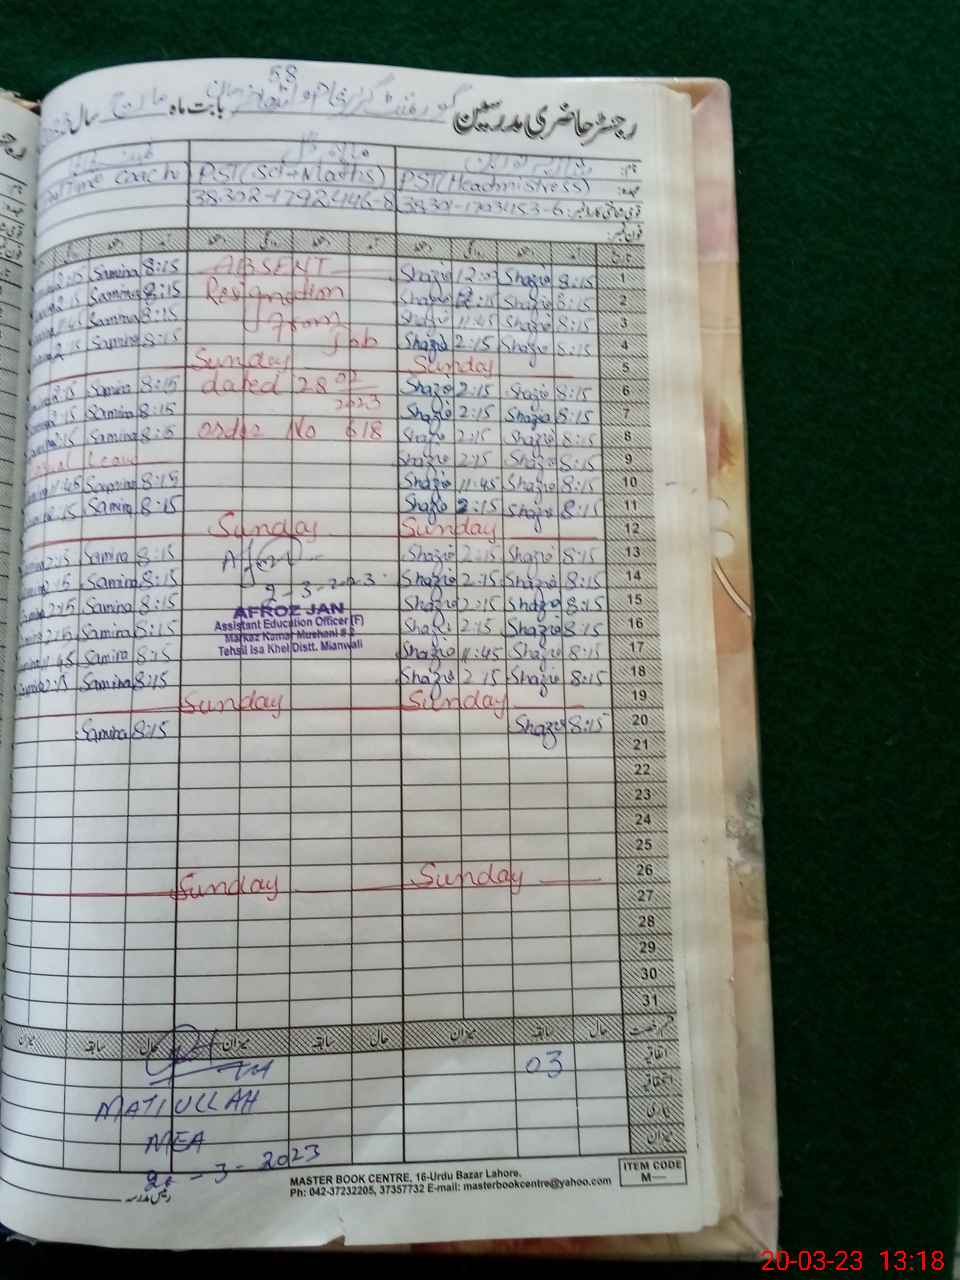 58
رجسٹر حاضری مدرسین گورنمنٹ گرلز بابت ماہ مارچ سال
نام:
Part Time Coach PST(Sci+Maths) PST(Headmistress) عہدہ:
38302-1792446-8 38301-1703453-6 قومی شناختی کارڈ نمبر:
فون نمبر:
آمد دستخط روانگی دستخط تاریخ
2:15 Samina 8:15 ABSENT Shazia 12:00 Shazia 8:15 1
2:15 Samina 8:15 Resignation Shazia 12:15 Shazia 8:15 2
11:45 Samina 8:15 from Shazia 11:45 Shazia 8:15 3
2:15 Samina 8:15 Job Shazia 2:15 Shazia 8:15 4
Sunday Sunday 5
2:15 Samina 8:15 dated 28 02 2023 Shazia 2:15 Shazia 8:15 6
2:15 Samina 8:15 Shazia 2:15 Shazia 8:15 7
2:15 Samina 8:15 order No 618 Shazia 2:15 Shazia 8:15 8
Casual Leave Shazia 2:15 Shazia 8:15 9
11:45 Samina 8:15 Shazia 11:45 Shazia 8:15 10
2:15 Samina 8:15 Shazia 2:15 Shazia 8:15 11
Sunday Sunday 12
2:15 Samina 8:15 Shazia 2:15 Shazia 8:15 13
2:15 Samina 8:15 2-3-2023 Shazia 2:15 Shazia 8:15 14
2:15 Samina 8:15 Shazia 2:15 Shazia 8:15 15
AFROZ JAN
Assistant Education Officer (F)
Markaz Kamar Mushani # 2
Tehsil Isa Khel Distt. Mianwali
2:15 Samina 8:15 Shazia 2:15 Shazia 8:15 16
11:45 Samina 8:15 Shazia 11:45 Shazia 8:15 17
2:15 Samina 8:15 Shazia 2:15 Shazia 8:15 18
Sunday Sunday 19
Samina 8:15 Shazia 8:15 20
21
22
23
24
25
Sunday Sunday 26
27
28
29
30
31
میزان سابقہ حال میزان سابقہ حال میزان سابقہ حال قسم رخصت
03 اتفاقیہ
استحقاقیہ
MATIULLAH بیماری
MEA میزان
20-3-2023
رئیس مدرسہ
MASTER BOOK CENTRE, 16-Urdu Bazar Lahore.
Ph: 042-37232205, 37357732 E-mail: masterbookcentre@yahoo.com
ITEM CODE
M—
20-03-23 13:18